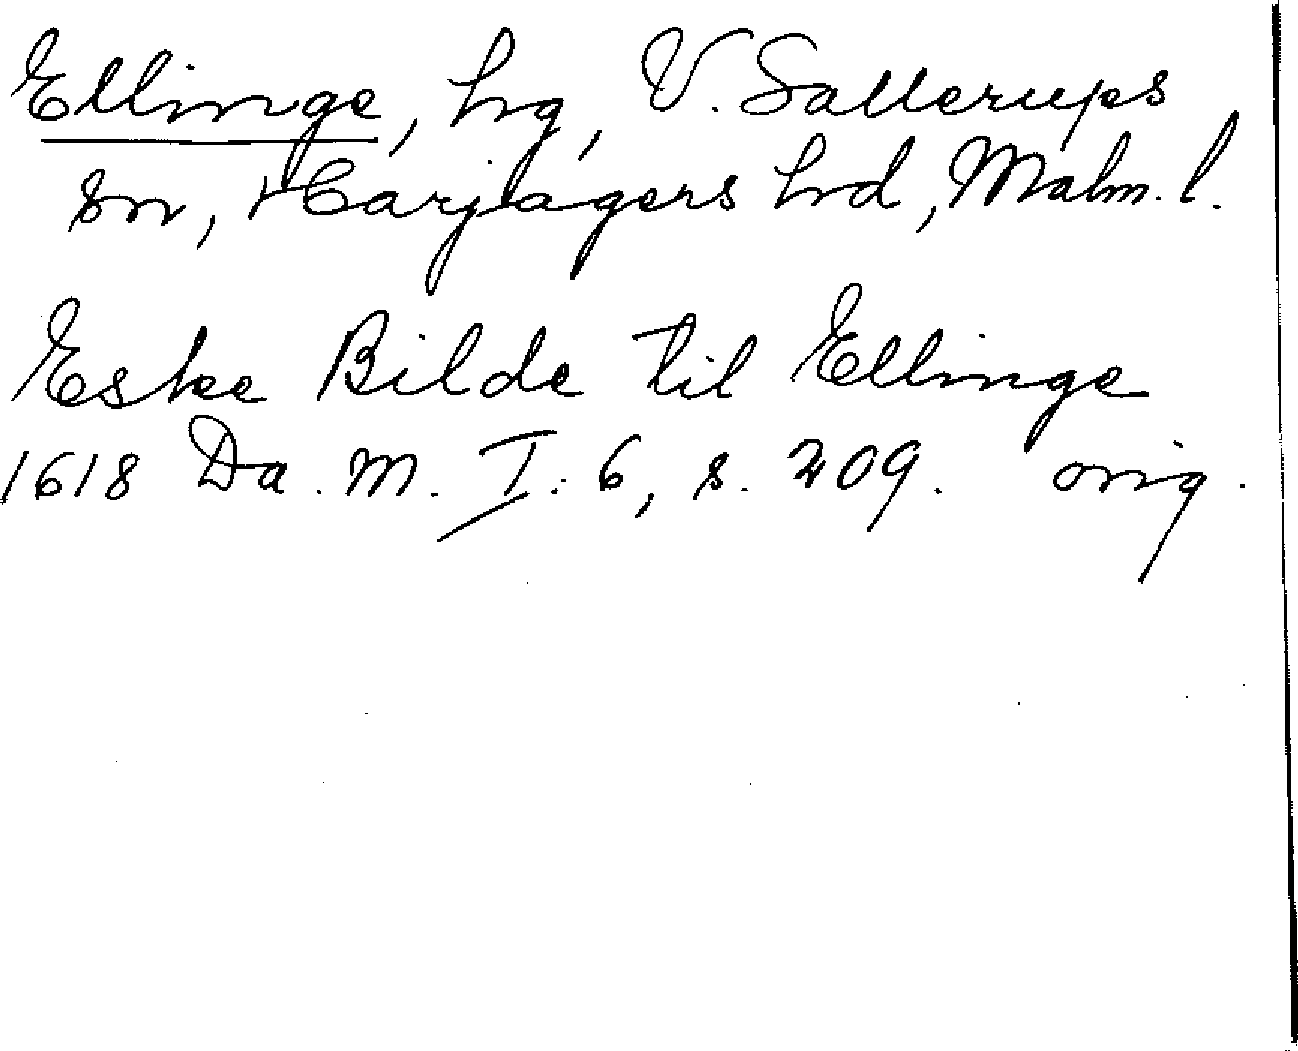 Ellinge, hg, V. Sallerups
sn, Harjagers hd, Malm. l.
Eske Bilde til Ellinge
1618 Da. M. I. 6, s. 209. orig.